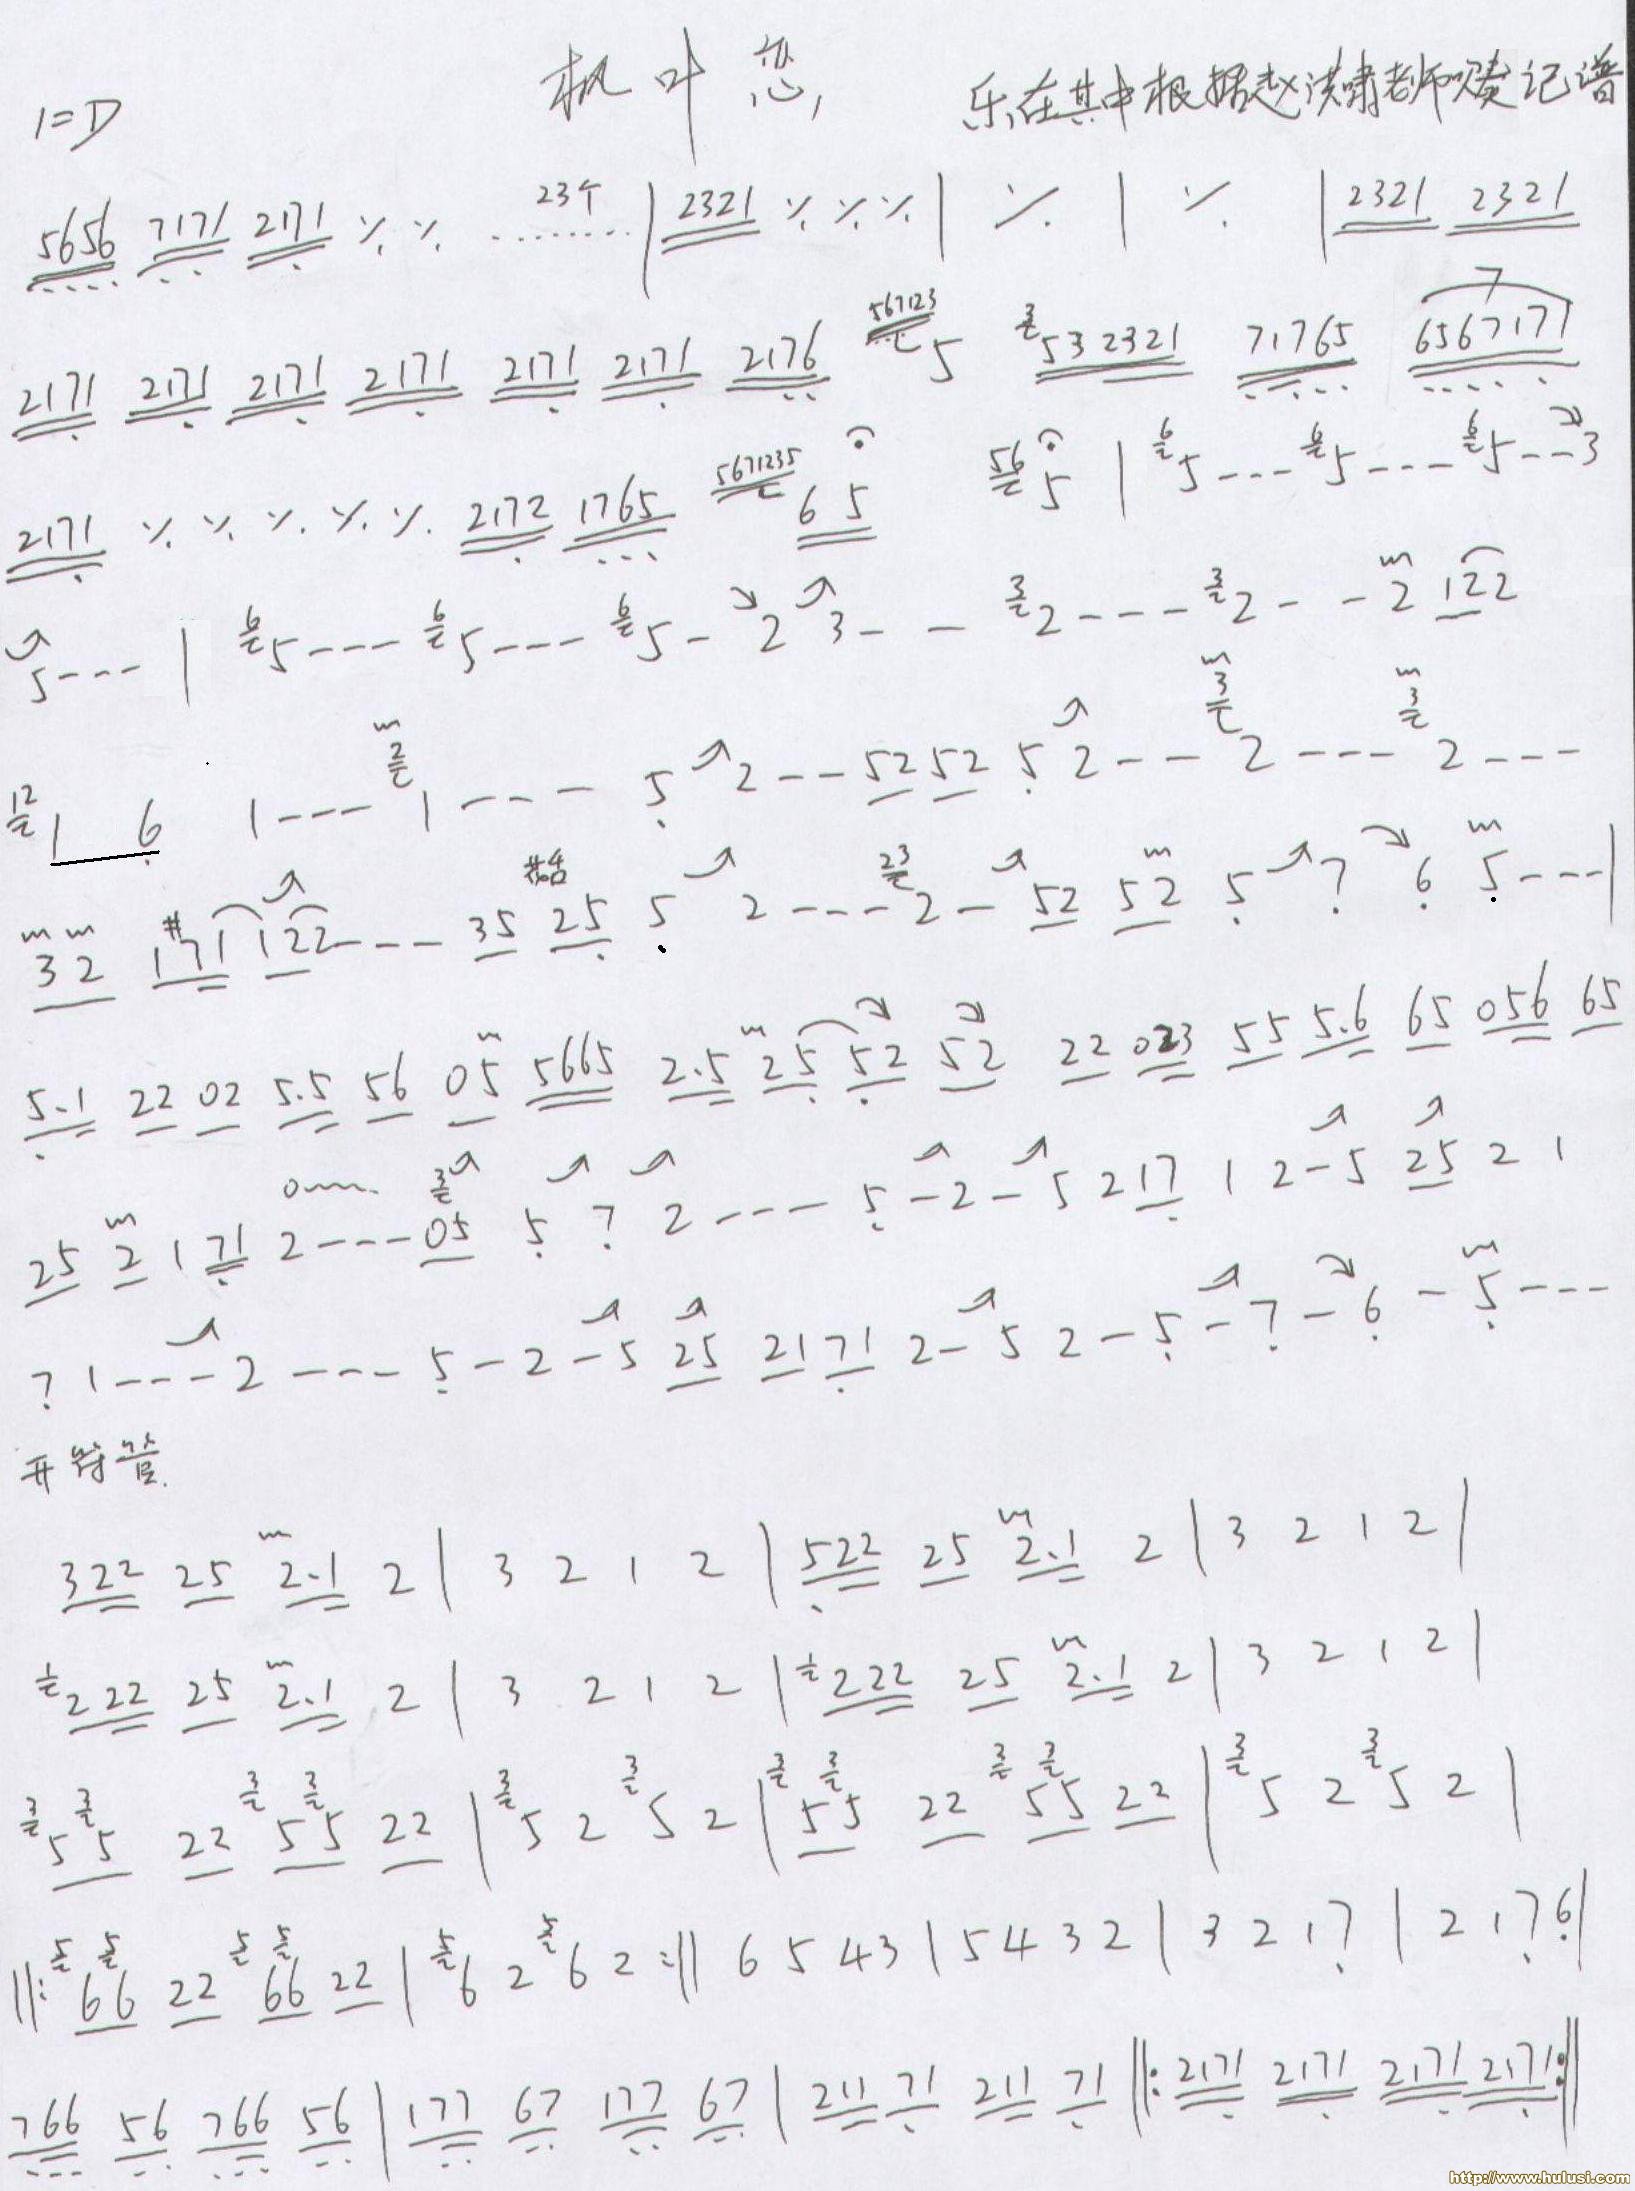 枫叶恋
1=D
乐在其中根据赵洪啸老师吹奏记谱
5656 7171 2171 ٪ ٪ ········ 23个 | 2321 ٪ ٪ ٪ | ٪ | ٪ | 2321 2321
2171 2171 2171 2171 2171 2171 2176 567123 5 3 532321 71765 6567171 7
2171 ٪ ٪ ٪ ٪ ٪ 2172 1765 5671235 6 5 56 5 | 6 5 --- 6 5 --- 6 5 -- 3
5 --- | 6 5 --- 6 5 --- 6 5 - 2 3 - - 3 2 --- 3 2 - - 2 122
12 1 6 1 --- 2 1 --- 5 2 -- 52 52 5 2 -- 3 2 --- 3 2 ---
3 2 1 #7 1 122 --- 35 25 5 2 --- 23 2 - 52 52 5 7 6 5 --- |
5.1 22 02 5.5 56 05 5665 2.5 25 52 52 22 023 55 5.6 65 056 65
25 2 1 71 2 --- 3 05 5 7 2 --- 5 - 2 - 5 2 17 1 2 - 5 25 2 1
7 1 --- 2 --- 5 - 2 - 5 25 21 71 2 - 5 2 - 5 - 7 - 6 - 5 ---
开旁管.
322 25 2.1 2 | 3 2 1 2 | 522 25 2.1 2 | 3 2 1 2 |
1 222 25 2.1 2 | 3 2 1 2 | 1 222 25 2.1 2 | 3 2 1 2 |
3 5 3 5 22 3 5 3 5 22 | 3 5 2 3 5 2 | 3 5 3 5 22 3 5 3 5 22 | 3 5 2 3 5 2 |
‖: 5 6 5 6 22 5 6 5 6 22 | 5 6 2 5 6 2 :‖ 6 5 4 3 | 5 4 3 2 | 3 2 1 7 | 2 1 7 6 |
766 56 766 56 | 177 67 177 67 | 211 71 211 71 ‖: 2171 2171 2171 2171 :‖
http://www.hulusi.com